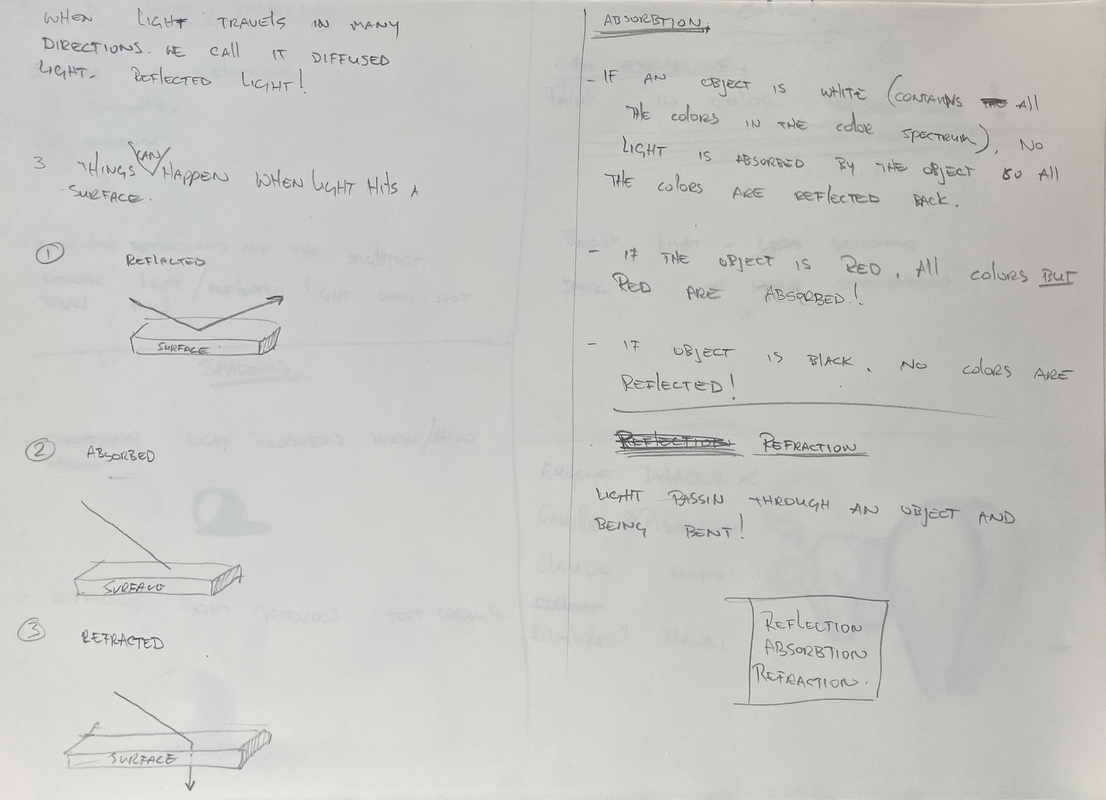 WHEN LIGHT TRAVELS IN MANY
DIRECTIONS. WE CALL IT DIFFUSED
LIGHT. REFLECTED LIGHT!
3 THINGS CAN HAPPEN WHEN LIGHT HITS A
SURFACE.
1 REFLACTED
SURFACE
2 ABSORBED
SURFACE
3 REFRACTED
SURFACE
ABSORBTION.
- IF AN OBJECT IS WHITE (CONTAINS All
THE COLORS IN THE COLOR SPECTRUM), NO
LIGHT IS ABSORBED BY THE OBJECT SO All
THE COLORS ARE REFLECTED BACK.
- IF THE OBJECT IS RED, All COLORS BUT
RED ARE ABSORBED!
- IF OBJECT IS BLACK, NO COLORS ARE
REFLECTED!
REFLECTION REFRACTION
LIGHT PASSIN THROUGH AN OBJECT AND
BEING BENT!
REFLECTION
ABSORBTION
REFRACTION.